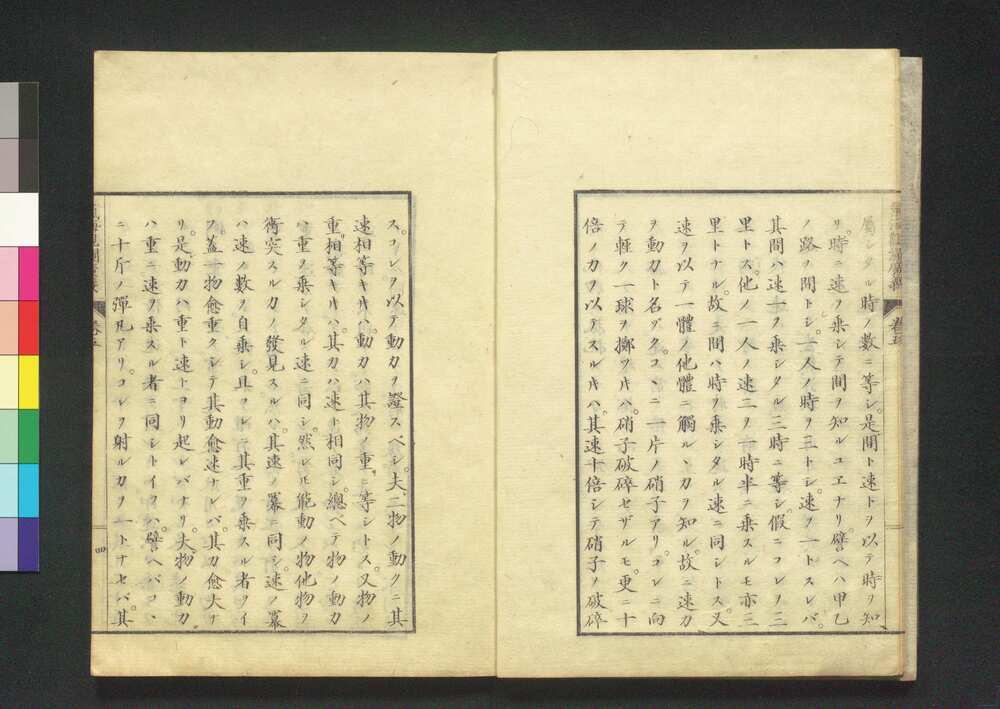 屬シタル時ノ數ニ等シ。是間ト速トヲ以テ時ヲ知
リ。時ニ速ヲ乘シテ間ヲ知ルユエナリ。譬ヘハ甲乙
ノ路ノ間トシ。一人ノ時ヲ三トシ。速ヲ一トスレバ。
其間ハ速一ヲ乘シタル三時ニ等シ。假ニコレノ三
里トス。他ノ一人ノ速二ヲ一時半ニ乘スルモ亦三
里トナル。故ニ間ハ時ヲ乘シタル速ニ同シトス。又
速ヲ以テ一體ノ他體ニ觸ルヽカヲ知ル。故ニ速力
ヲ動力ト名ヅク。コヽニ一片ノ硝子アリ。コレニ向
テ輕ク一球ヲ擲ツキハ。硝子破碎セザルモ。更ニ十
倍ノ力ヲ以テスルキハ。其速十倍シテ硝子ノ破碎
卷五
ス。コレヲ以テ動力ヲ證スベシ。夫二物ノ動クニ其
速相等キキハ。動力ハ其物ノ重ニ等シトス。又物ノ
重相等キキハ。其力ハ速ト相同シ。總ベテ物ノ動力
ハ重ヲ乘シタル速ニ同シ。然レモ能動ノ物他物ヲ
衝突スル力ノ發見スルハ。其速ノ冪ニ同シ。速ノ冪
ハ速ノ數ヲ自乘シ。且コレニ其重ヲ乘スル者ヲイ
フ。蓋一物愈重クシテ其動愈速ナレバ。其力愈大ナ
リ。是動力ハ重ト速トヨリ起レバナリ。夫物ノ動力
ハ重ニ速ヲ乘スル者ニ同シトイフハ。譬ヘバコヽ
ニ十斤ノ彈凡アリ。コレヲ射ル力ヲ一トナセバ。其
卷五
四